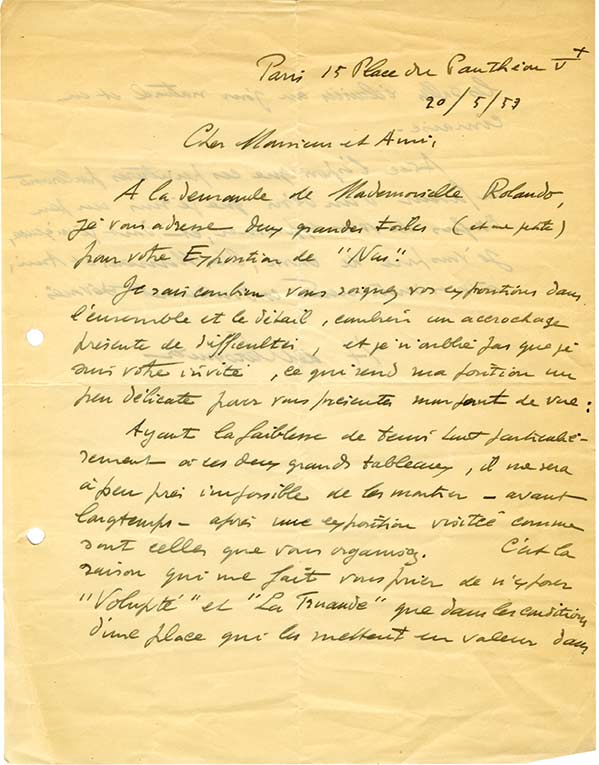 Paris 15 Place du Panthéon V
20/5/53
Cher Monsieur et Ami,
A la demande de Mademoiselle Rolando,
je vous adresse deux grandes toiles (et une petite)
pour votre Exposition de "Nus".
Je sais combien vous soignez vos expositions dans
l'ensemble et le détail, combien un accrochage
présente de difficultés, et je n'oublie pas que je
suis votre invité, ce qui rend ma position un
peu délicate pour vous présenter mon point de vue :
Ayant la faiblesse de tenir tout particuliè-
rement à ces deux grands tableaux, il me sera
à peu près impossible de les montrer - avant
longtemps - après une exposition visitée comme
sont celles que vous organisez. C'est la
raison qui me fait vous prier de n'exposer
"Volupté" et "La Truande" que dans les conditions
d'une place qui les mettent en valeur dans